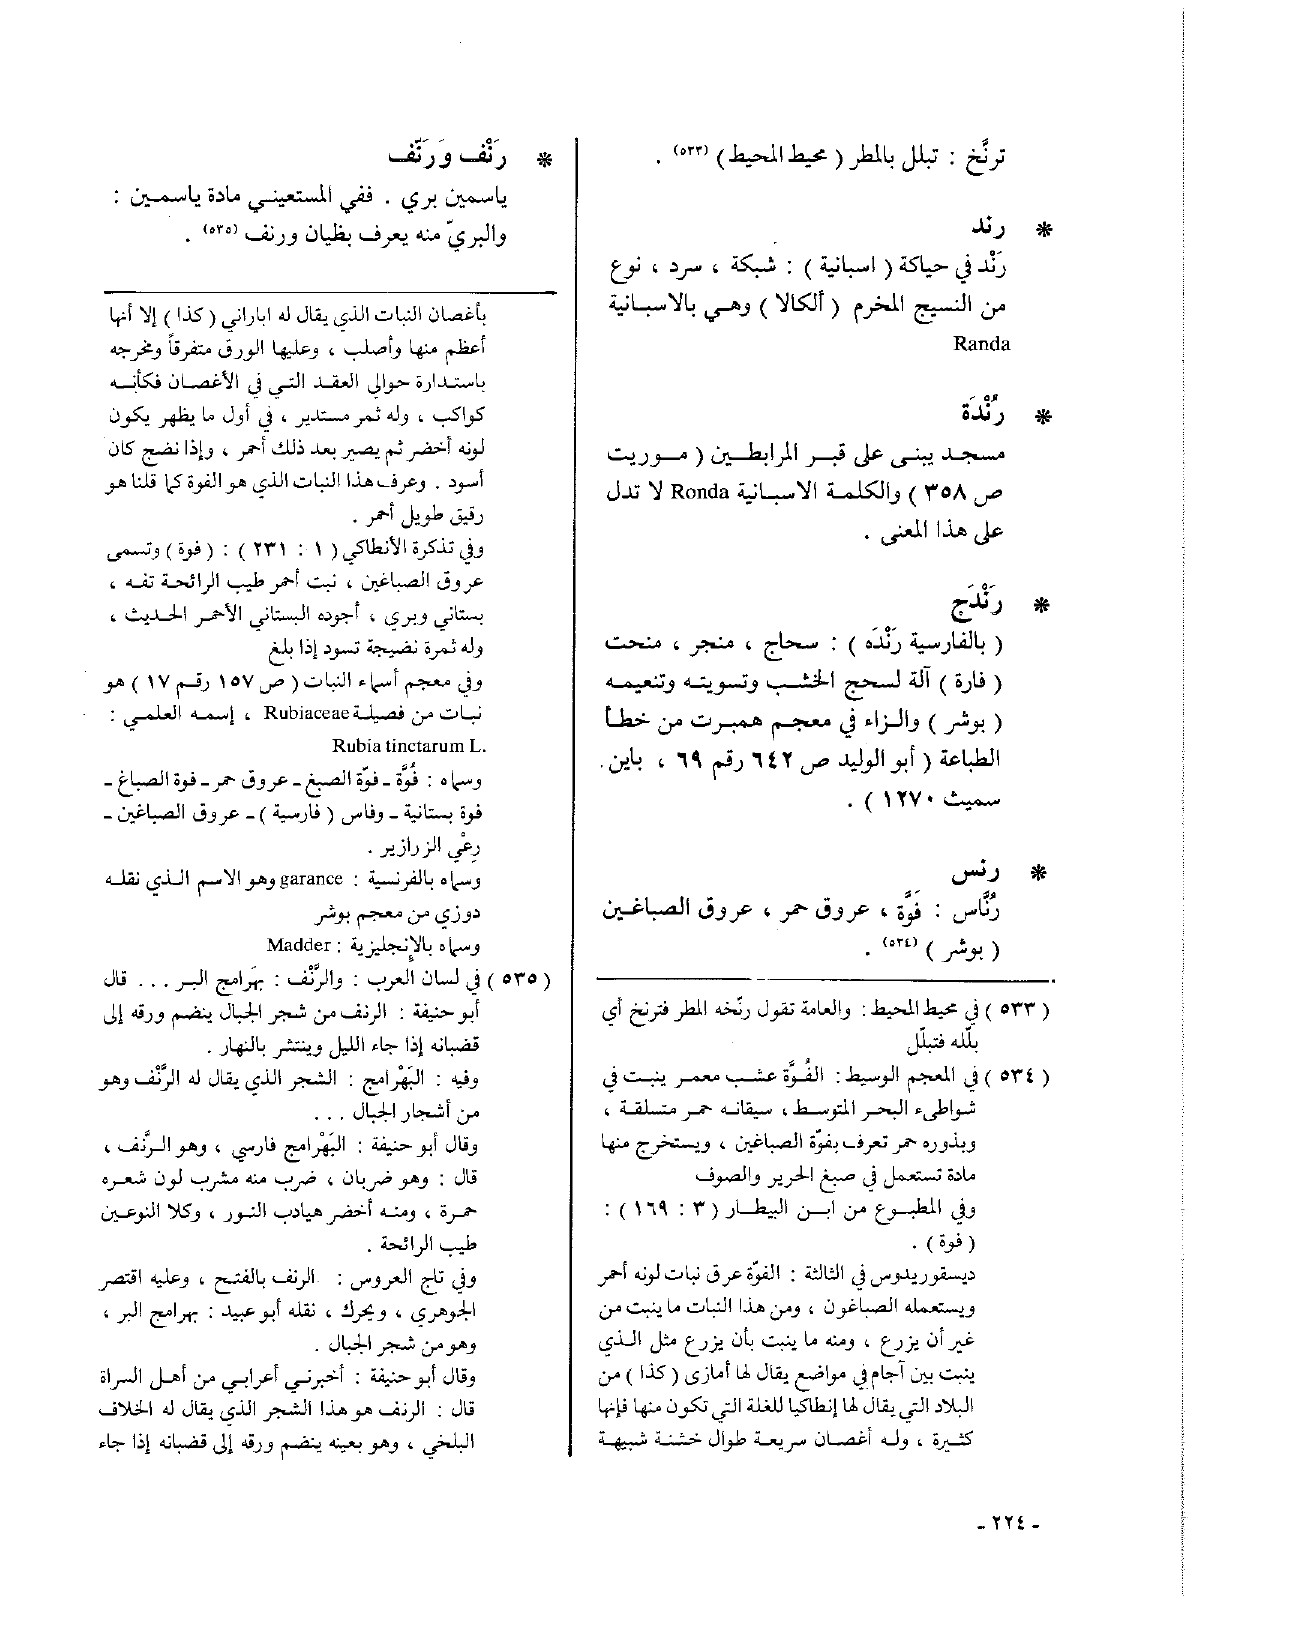 ترنَّخ : تبلل بالمطر ( محيط المحيط ) (٥٣٣) .
* رند
رَنْد في حياكة ( اسبانية ) : شبكة ، سرد ، نوع
من النسيج المخرم ( ألكالا ) وهي بالاسبانية
Randa
* رُنْدَة
مسجد يبنى على قبر المرابطين ( موريت
ص ٣٥٨ ) والكلمة الاسبانية Ronda لا تدل
على هذا المعنى .
* رَنْدَج
( بالفارسية رَنْدَه ) : سحاج ، منجر ، منحت
( فارة ) آلة لسحج الخشب وتسويته وتنعيمه
( بوشر ) والزاء في معجم همبرت من خطأ
الطباعة ( أبو الوليد ص ٦٤٢ رقم ٦٩ ، باين.
سميث ١٢٧٠ ) .
* رنس
رُنَّاس : فَوَّة ، عروق حمر ، عروق الصباغين
( بوشر ) (٥٣٤) .
( ٥٣٣ ) في محيط المحيط : والعامة تقول رنّخه المطر فترنخ أي
بلّله فتبلّل
( ٥٣٤ ) في المعجم الوسيط : الفُوَّة عشب معمر ينبت في
شواطىء البحر المتوسط ، سيقانه حمر متسلقة ،
وبذوره حمر تعرف بفوّة الصباغين ، ويستخرج منها
مادة تستعمل في صبغ الحرير والصوف
وفي المطبوع من ابن البيطار ( ٣ : ١٦٩ ) :
( فوة ) .
ديسقوريدوس في الثالثة : الفوّة عرق نبات لونه أحمر
ويستعمله الصباغون ، ومن هذا النبات ما ينبت من
غير أن يزرع ، ومنه ما ينبت بأن يزرع مثل الذي
ينبت بين آجام في مواضع يقال لها أمازى ( كذا ) من
البلاد التي يقال لها إنطاكيا للغلة التي تكون منها فإنها
كثيرة ، وله أغصان سريعة طوال خشنة شبيهة
* رَنْف وَرَنَّف
ياسمين بري . ففي المستعيني مادة ياسمين :
والبريّ منه يعرف بظيان ورنف (٥٣٥) .
بأغصان النبات الذي يقال له اباراني ( كذا ) إلا أنها
أعظم منها وأصلب ، وعليها الورق متفرقاً ومخرجه
باستدارة حوالي العقد التي في الأغصان فكأنه
كواكب ، وله ثمر مستدير ، في أول ما يظهر يكون
لونه أخضر ثم يصير بعد ذلك أحمر ، وإذا نضج كان
أسود . وعرف هذا النبات الذي هو الفوة كما قلنا هو
رقيق طويل أحمر .
وفي تذكرة الأنطاكي ( ١ : ٢٣١ ) : ( فوة ) وتسمى
عروق الصباغين ، نبت أحمر طيب الرائحة تفه ،
بستاني وبري ، أجوده البستاني الأحمر الحديث ،
وله ثمرة نضيجة تسود إذا بلغ
وفي معجم أسماء النبات ( ص ١٥٧ رقم ١٧ ) هو
نبات من فصيلة Rubiaceae ، إسمه العلمي :
Rubia tinctarum L.
وسماه : فُوَّة ـ فوّة الصبغ ـ عروق حمر ـ فوة الصباغ ـ
فوة بستانية ـ وفاس ( فارسية ) ـ عروق الصباغين ـ
رِعْي الزرازير .
وسماه بالفرنسية : garance وهو الاسم الذي نقله
دوزي من معجم بوشر
وسماه بالإنجليزية : Madder
( ٥٣٥ ) في لسان العرب : والرَّنْف : بهَرامج البر ... قال
أبو حنيفة : الرنف من شجر الجبال ينضم ورقه إلى
قضبانه إذا جاء الليل وينتشر بالنهار .
وفيه : البَهْرامج : الشجر الذي يقال له الرَّنْف وهو
من أشجار الجبال ...
وقال أبو حنيفة : البَهْرامج فارسي ، وهو الرَّنف ،
قال : وهو ضربان ، ضرب منه مشرب لون شعره
حمرة ، ومنه أخضر هيادب النور ، وكلا النوعين
طيب الرائحة .
وفي تاج العروس : الرنف بالفتح ، وعليه اقتصر
الجوهري ، ويحرك ، نقله أبو عبيد : بهرامج البر ،
وهو من شجر الجبال .
وقال أبو حنيفة : أخبرني أعرابي من أهل السراة
قال : الرنف هو هذا الشجر الذي يقال له الخلاف
البلخي ، وهو بعينه ينضم ورقه إلى قضبانه إذا جاء
- ٢٢٤ -